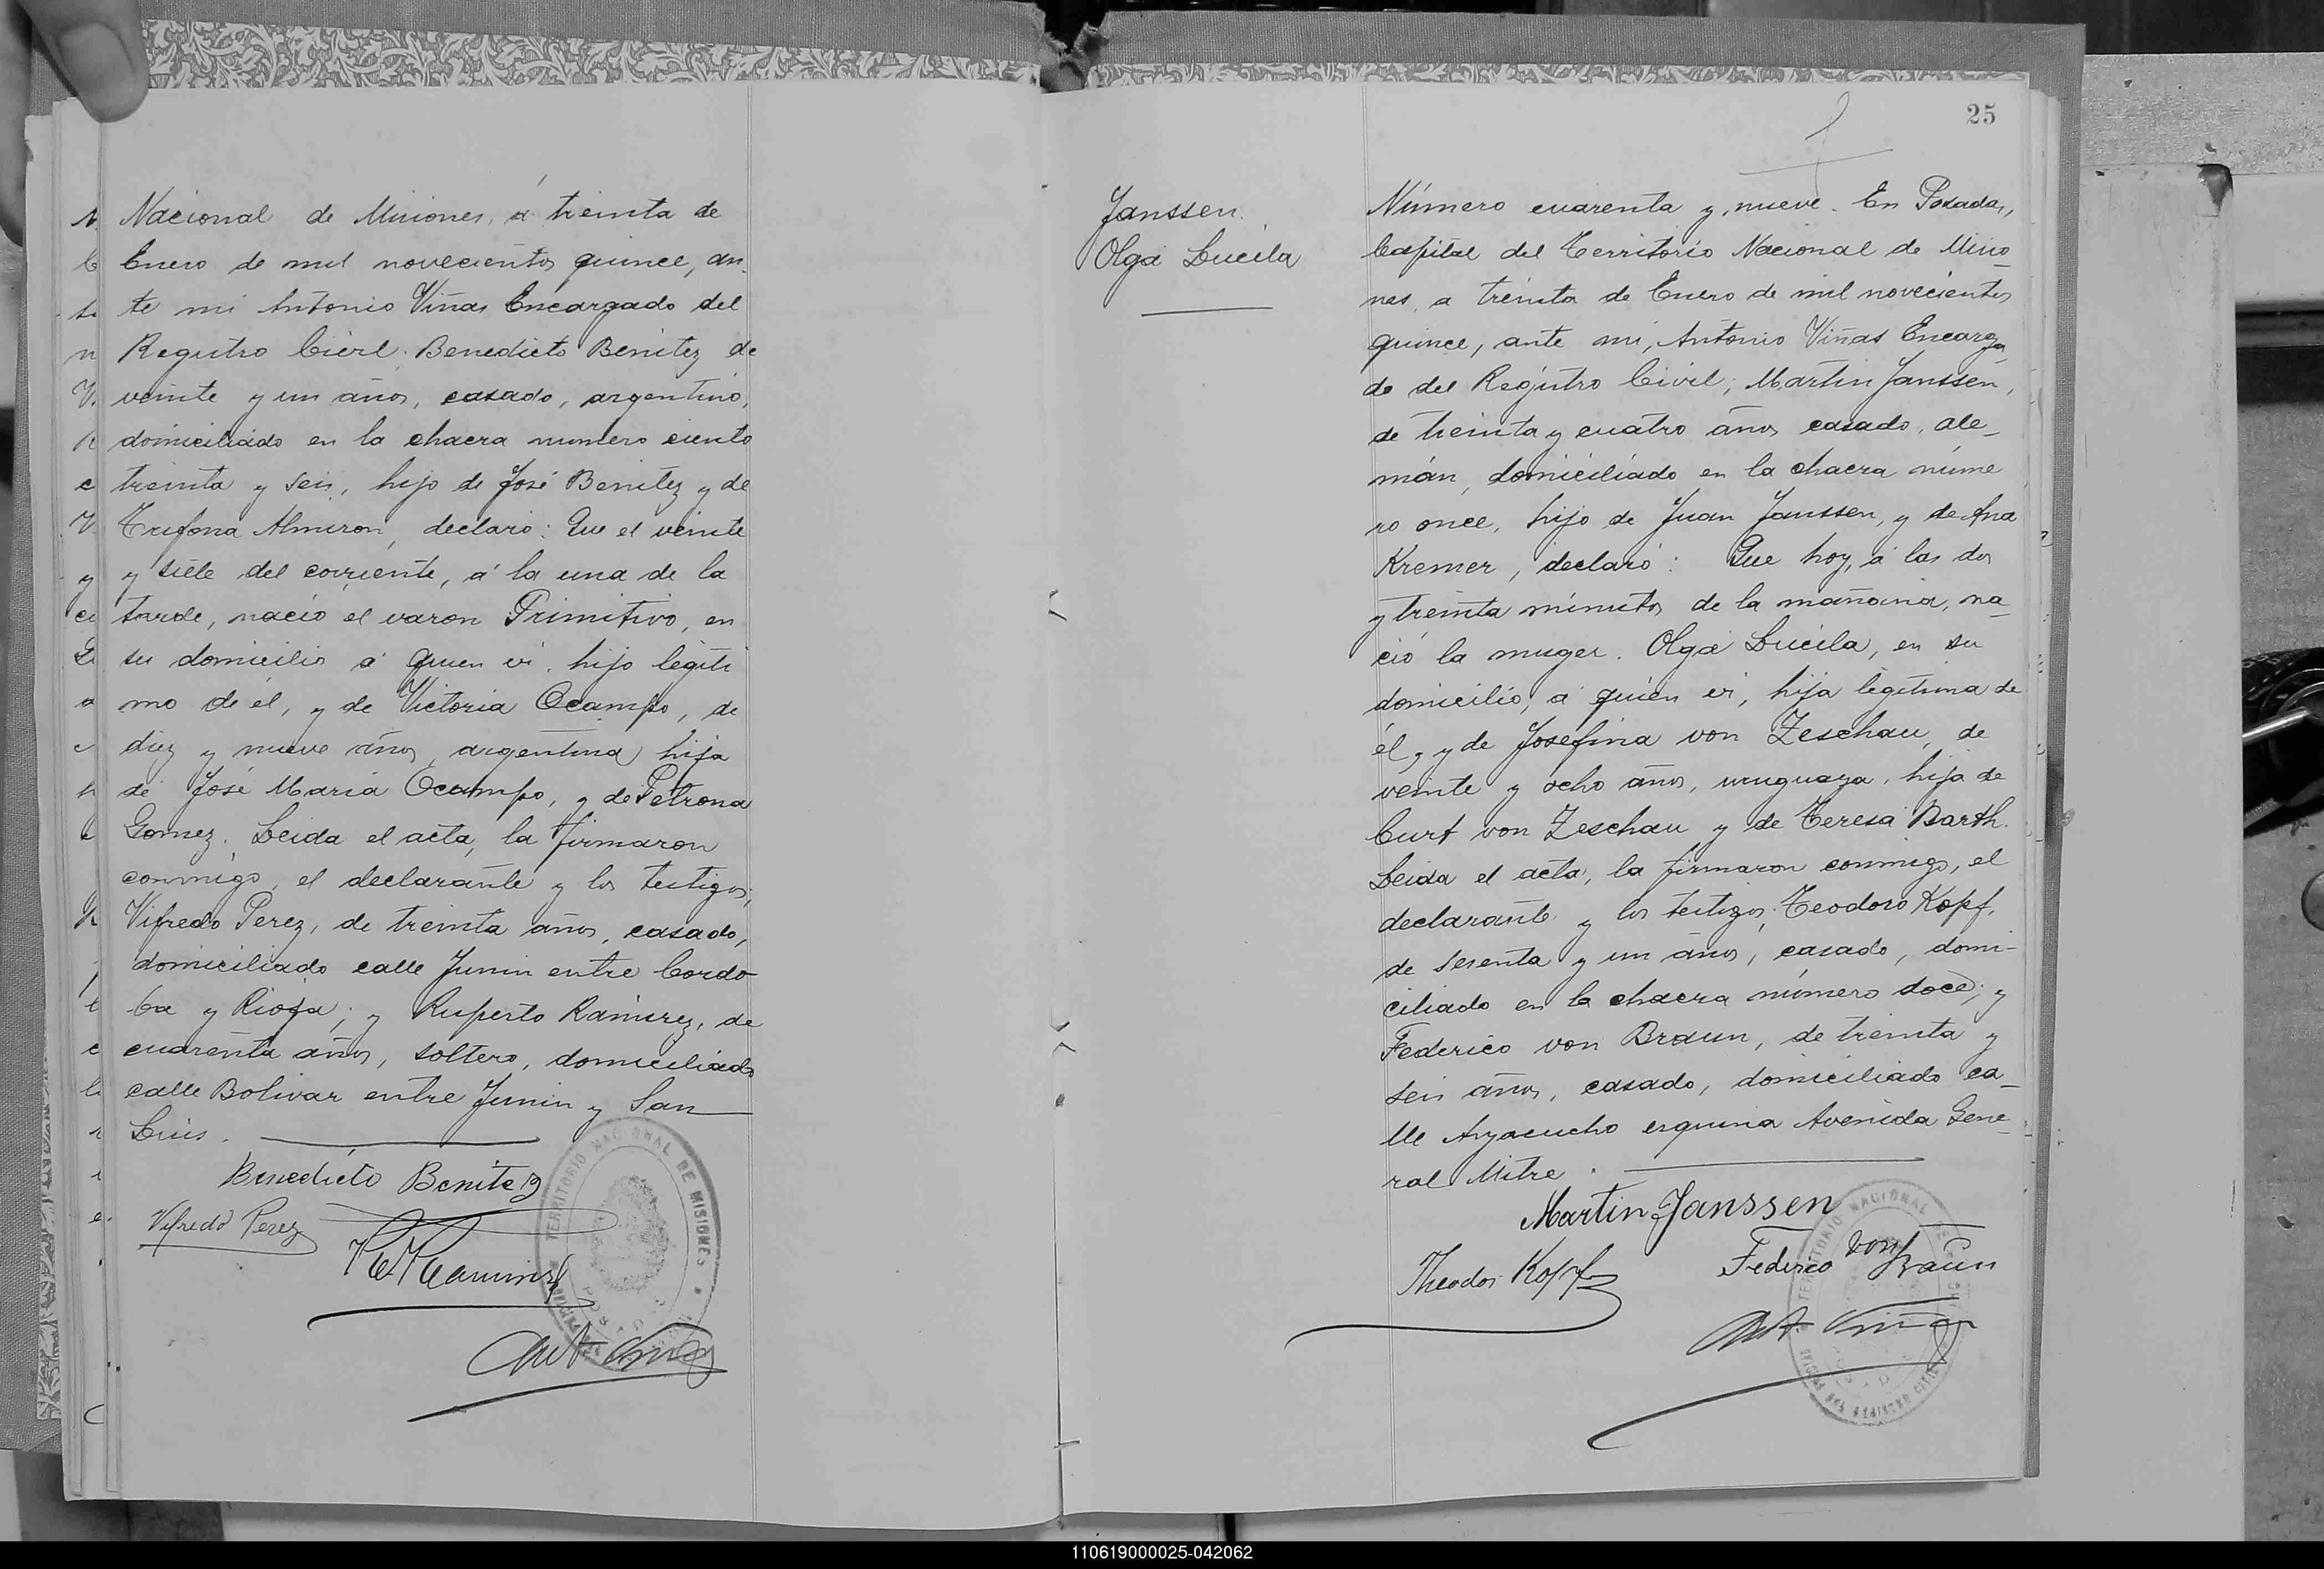 Nacional de Misiones, á treinta de
Enero de mil novecientos quince, an-
te mi Antonio Viñas Encargado del
Registro Civil; Benedicto Benitez de
veinte y un años, casado, argentino,
domiciliado en la chacra numero ciento
treinta y seis, hijo de José Benitez y de
Trifona Almiron, declaró: Que el veinte
y siete del corriente, á la una de la
tarde, nació el varon Primitivo, en
su domicilio á quien vi, hijo legiti
mo de él, y de Victoria Ocampo, de
diez y nueve años, argentina, hija
de José Maria Ocampo, y de Petrona
Gomez. Leida el acta, la firmaron
conmigo, el declarante y los testigos;
Vifredo Perez, de treinta años, casado,
domiciliado calle Junin entre Cordo
ba y Rioja; y Ruperto Ramirez, de
cuarenta años, soltero, domiciliado
calle Bolivar entre Junin y San
Luis.
Benedicto Benitez
Vifredo Perez
R. Ramirez
Ant Viñas
TERRITORIO NACIONAL DE MISIONES
25
Janssen.
Olga Lucila
Número cuarenta y nueve. En Posadas,
Capital del Territorio Nacional de Misio
nes, a treinta de Enero de mil novecientos
quince, ante mi, Antonio Viñas Encarga
do del Registro Civil; Martin Janssen,
de treinta y cuatro años casado, ale-
mán, domiciliado en la chacra núme
ro once, hijo de Juan Janssen, y de Ana
Kremer, declaró: Que hoy, á las dos
y treinta minutos de la mañana, na-
ció la muger. Olga Lucila, en su
domicilio, á quien vi, hija legitima de
él, y de Josefina von Zeschau, de
veinte y ocho años, uruguaya, hija de
Curt von Zeschau y de Teresa Barth.
Leida el acta, la firmaron conmigo, el
declarante y los testigos; Teodoro Kopf,
de sesenta y un años, casado, domi-
ciliado en la chacra número doce; y
Federico von Braun, de treinta y
seis años, casado, domiciliado ca-
lle Ayacucho esquina Avenida Gene-
ral Mitre.
Martin Janssen
Theodor Kopf
Federico von Braun
Ant Viñas
TERRITORIO NACIONAL DE
110619000025-042062